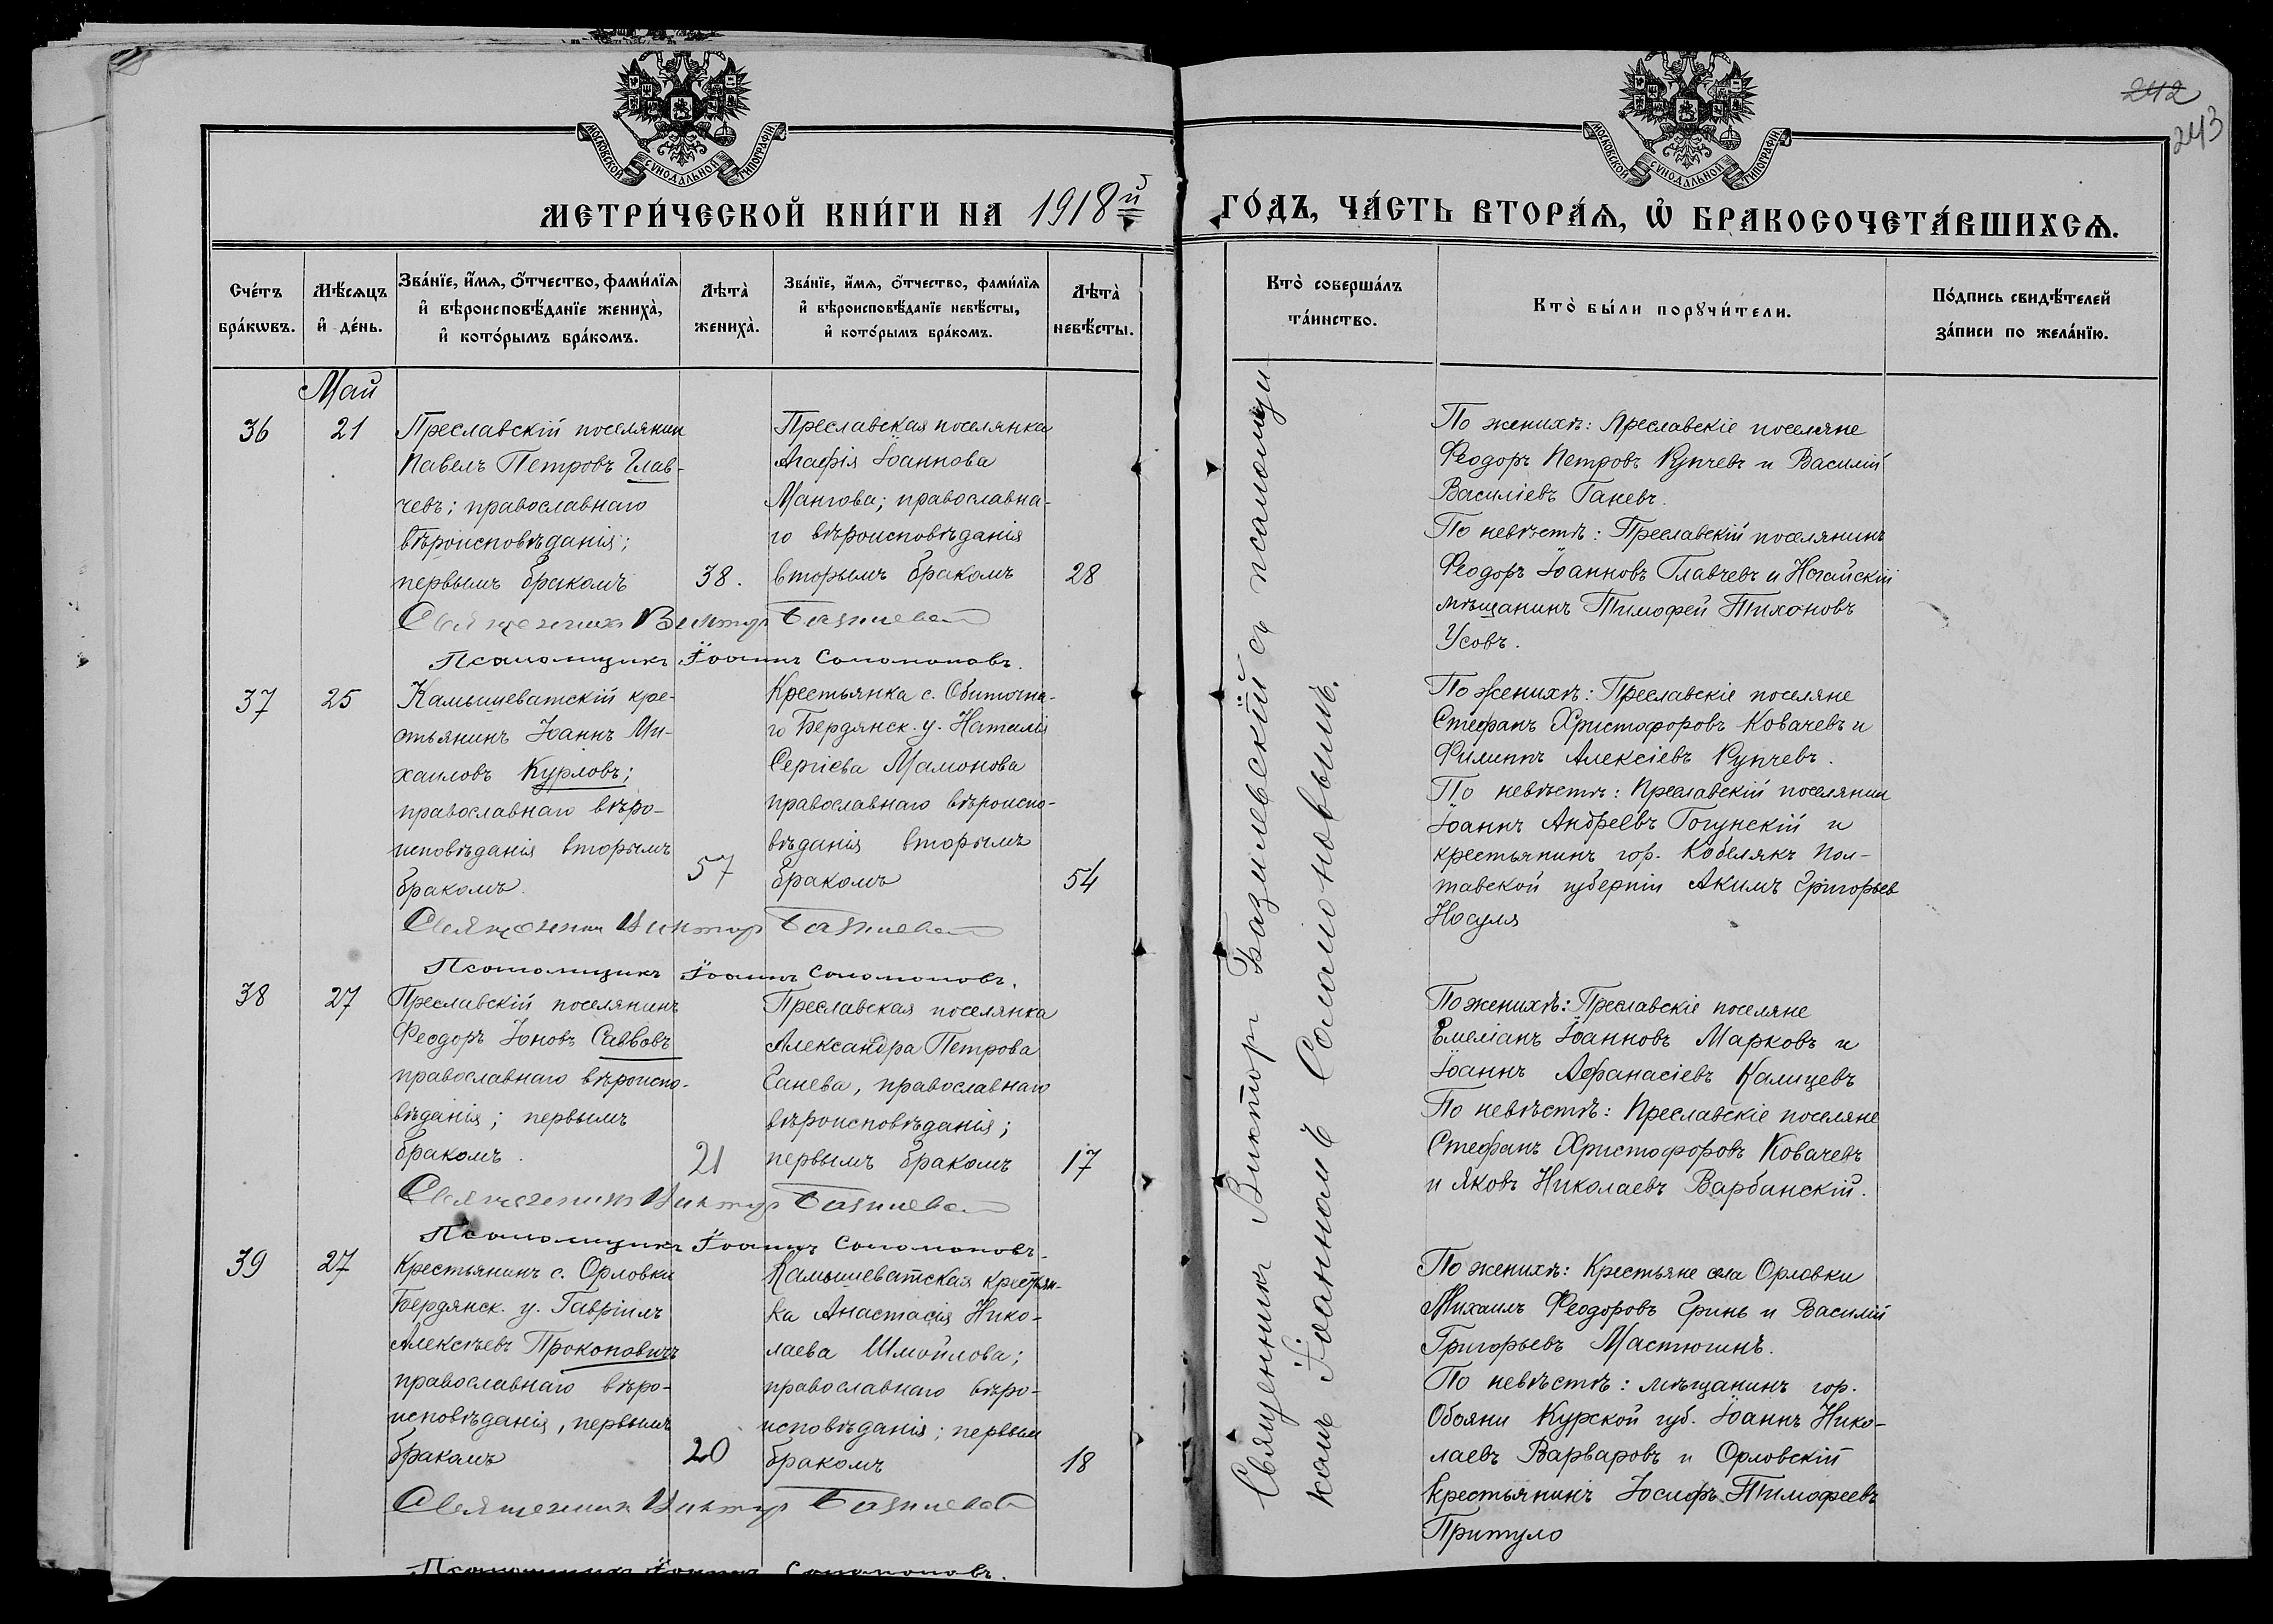 242
243
МОСКОВСКОЙ СѴНОДАЛЬНОЙ ТИПОГРАФІИ
МОСКОВСКОЙ СѴНОДАЛЬНОЙ ТИПОГРАФІИ
МЕТРИ́ЧЕСКОЙ КНИ́ГИ НА 1918й
ГО́ДЪ, ЧА́СТЬ ВТОРА́Ѧ, Ѡ҆ БРАКОСОЧЕТА́ВШИХСѦ.
Сче́тъ
бра́кѡвъ.
Мѣ́сѧцъ
и҆ де́нь.
Зва́нїе, и҆́мѧ, ѻ҆́тчество, фами́лїѧ
и҆ вѣроисповѣ́данїе жениха̀,
и҆ кото́рымъ бра́комъ.
Лѣта̀
жениха̀.
Зва́нїе, и҆́мѧ, ѻ҆́тчество, фами́лїѧ
и҆ вѣроисповѣ́данїе невѣ́сты,
и҆ кото́рымъ бра́комъ.
Лѣта̀
невѣ́сты.
Кто̀ соверша́лъ
та́инство.
Кто̀ бы́ли порꙋчи́тели.
По́дпись свидѣ́телей
за́писи по жела́нїю.
Май
36
21
Преславскій поселянин
Павелъ Петровъ Глав-
чевъ; православнаго
вѣроисповѣданія;
первымъ бракомъ
38.
Преславская поселянка
Агафія Іоаннова
Мангова; православна-
го вѣроисповѣданія
вторымъ бракомъ
28
Священник Виктор Базилевск
Псаломщикъ Іоаннъ Соломоновъ.
По женихѣ: Преславскіе поселяне
Феодоръ Петровъ Купчевъ и Василій
Василіевъ Ганевъ.
По невѣстѣ: Преславскій поселянинъ
Феодоръ Іоанновъ Главчевъ и Ногайскій
мѣщанинъ Тимофей Тихоновъ
Усовъ.
37
25
Камышеватскій кре-
стьянинъ Іоаннъ Ми-
хаиловъ Курловъ;
православнаго вѣро-
исповѣданія вторымъ
бракомъ.
57
Крестьянка с. Обиточна-
го Бердянск. у. Наталія
Сергіева Мамонова
православнаго вѣроиспо-
вѣданія вторымъ
бракомъ
54
Священник Виктор Базилевск
Псаломщикъ Іоаннъ Соломоновъ.
По женихѣ: Преславскіе поселяне
Стефанъ Христофоровъ Ковачевъ и
Филиппъ Алексіевъ Купчевъ.
По невѣстѣ: Преславскій поселянин
Іоаннъ Андреевъ Гогунскій и
крестьянинъ гор. Кобелякъ Пол-
тавской губерніи Акимъ Григорьев
Носуля
38
27
Преславскій поселянинъ
Феодоръ Іоновъ Саввовъ
православнаго вѣроиспо-
вѣданія; первымъ
бракомъ.
21
Преславская поселянка
Александра Петрова
Ганева, православнаго
вѣроисповѣданія;
первымъ бракомъ
17
Священник Виктор Базилевск
Псаломщикъ Іоаннъ Соломоновъ.
По женихѣ: Преславскіе поселяне
Емеліанъ Іоанновъ Марковъ и
Іоаннъ Афанасіевъ Калицевъ
По невѣстѣ: Преславскіе поселяне
Стефанъ Христофоровъ Ковачевъ
и Яковъ Николаевъ Варбанскій.
39
27
Крестьянинъ с. Орловки
Бердянск. у. Гавріилъ
Алексѣевъ Прокоповичъ
православнаго вѣро-
исповѣданія, первымъ
бракомъ
20
Камышеватская крестьян-
ка Анастасія Нико-
лаева Шмойлова;
православнаго вѣро-
исповѣданія; первым
бракомъ
18
Священник Виктор Базилевск
Псаломщикъ Іоаннъ Соломоновъ.
По женихѣ: Крестьяне села Орловки
Михаилъ Феодоровъ Гринь и Василій
Григорьевъ Мастюгинъ.
По невѣстѣ: мѣщанинъ гор.
Обояни Курской губ. Іоаннъ Нико-
лаевъ Варваровъ и Орловскій
крестьянинъ Іосифъ Тимофеевъ
Притуло
Священникъ Викторъ Базилевскій съ псаломщи
комъ Іоанномъ Соломоновымъ.